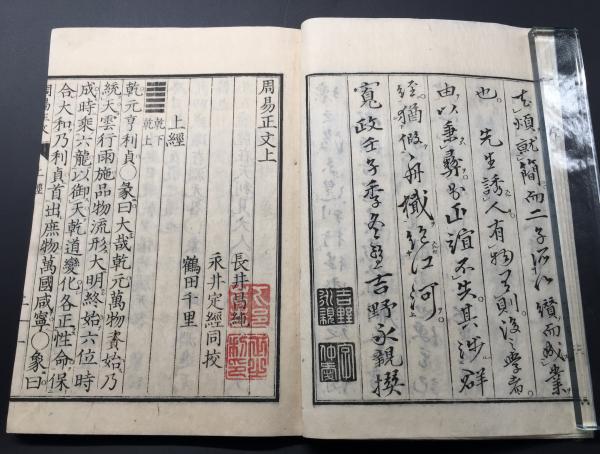 去煩就簡而二子所以纘而成業
也。先生誘人有物有則後學者
由以秉彝不失其涉群
經猶假舟檝絶江河。
寛政壬子季冬望吉野永親撰
吉野永親
周易正文上
長井昌純
永井定經同校
鶴田千里
上經
乾下
乾上
乾元亨利貞○彖曰大哉乾元萬物資始乃
統天雲行雨施品物流形大明終始六位時
成時乘六龍以御天乾道變化各正性命保
合大和乃利貞首出庶物萬國咸寧○象曰
周易正文 上經 一